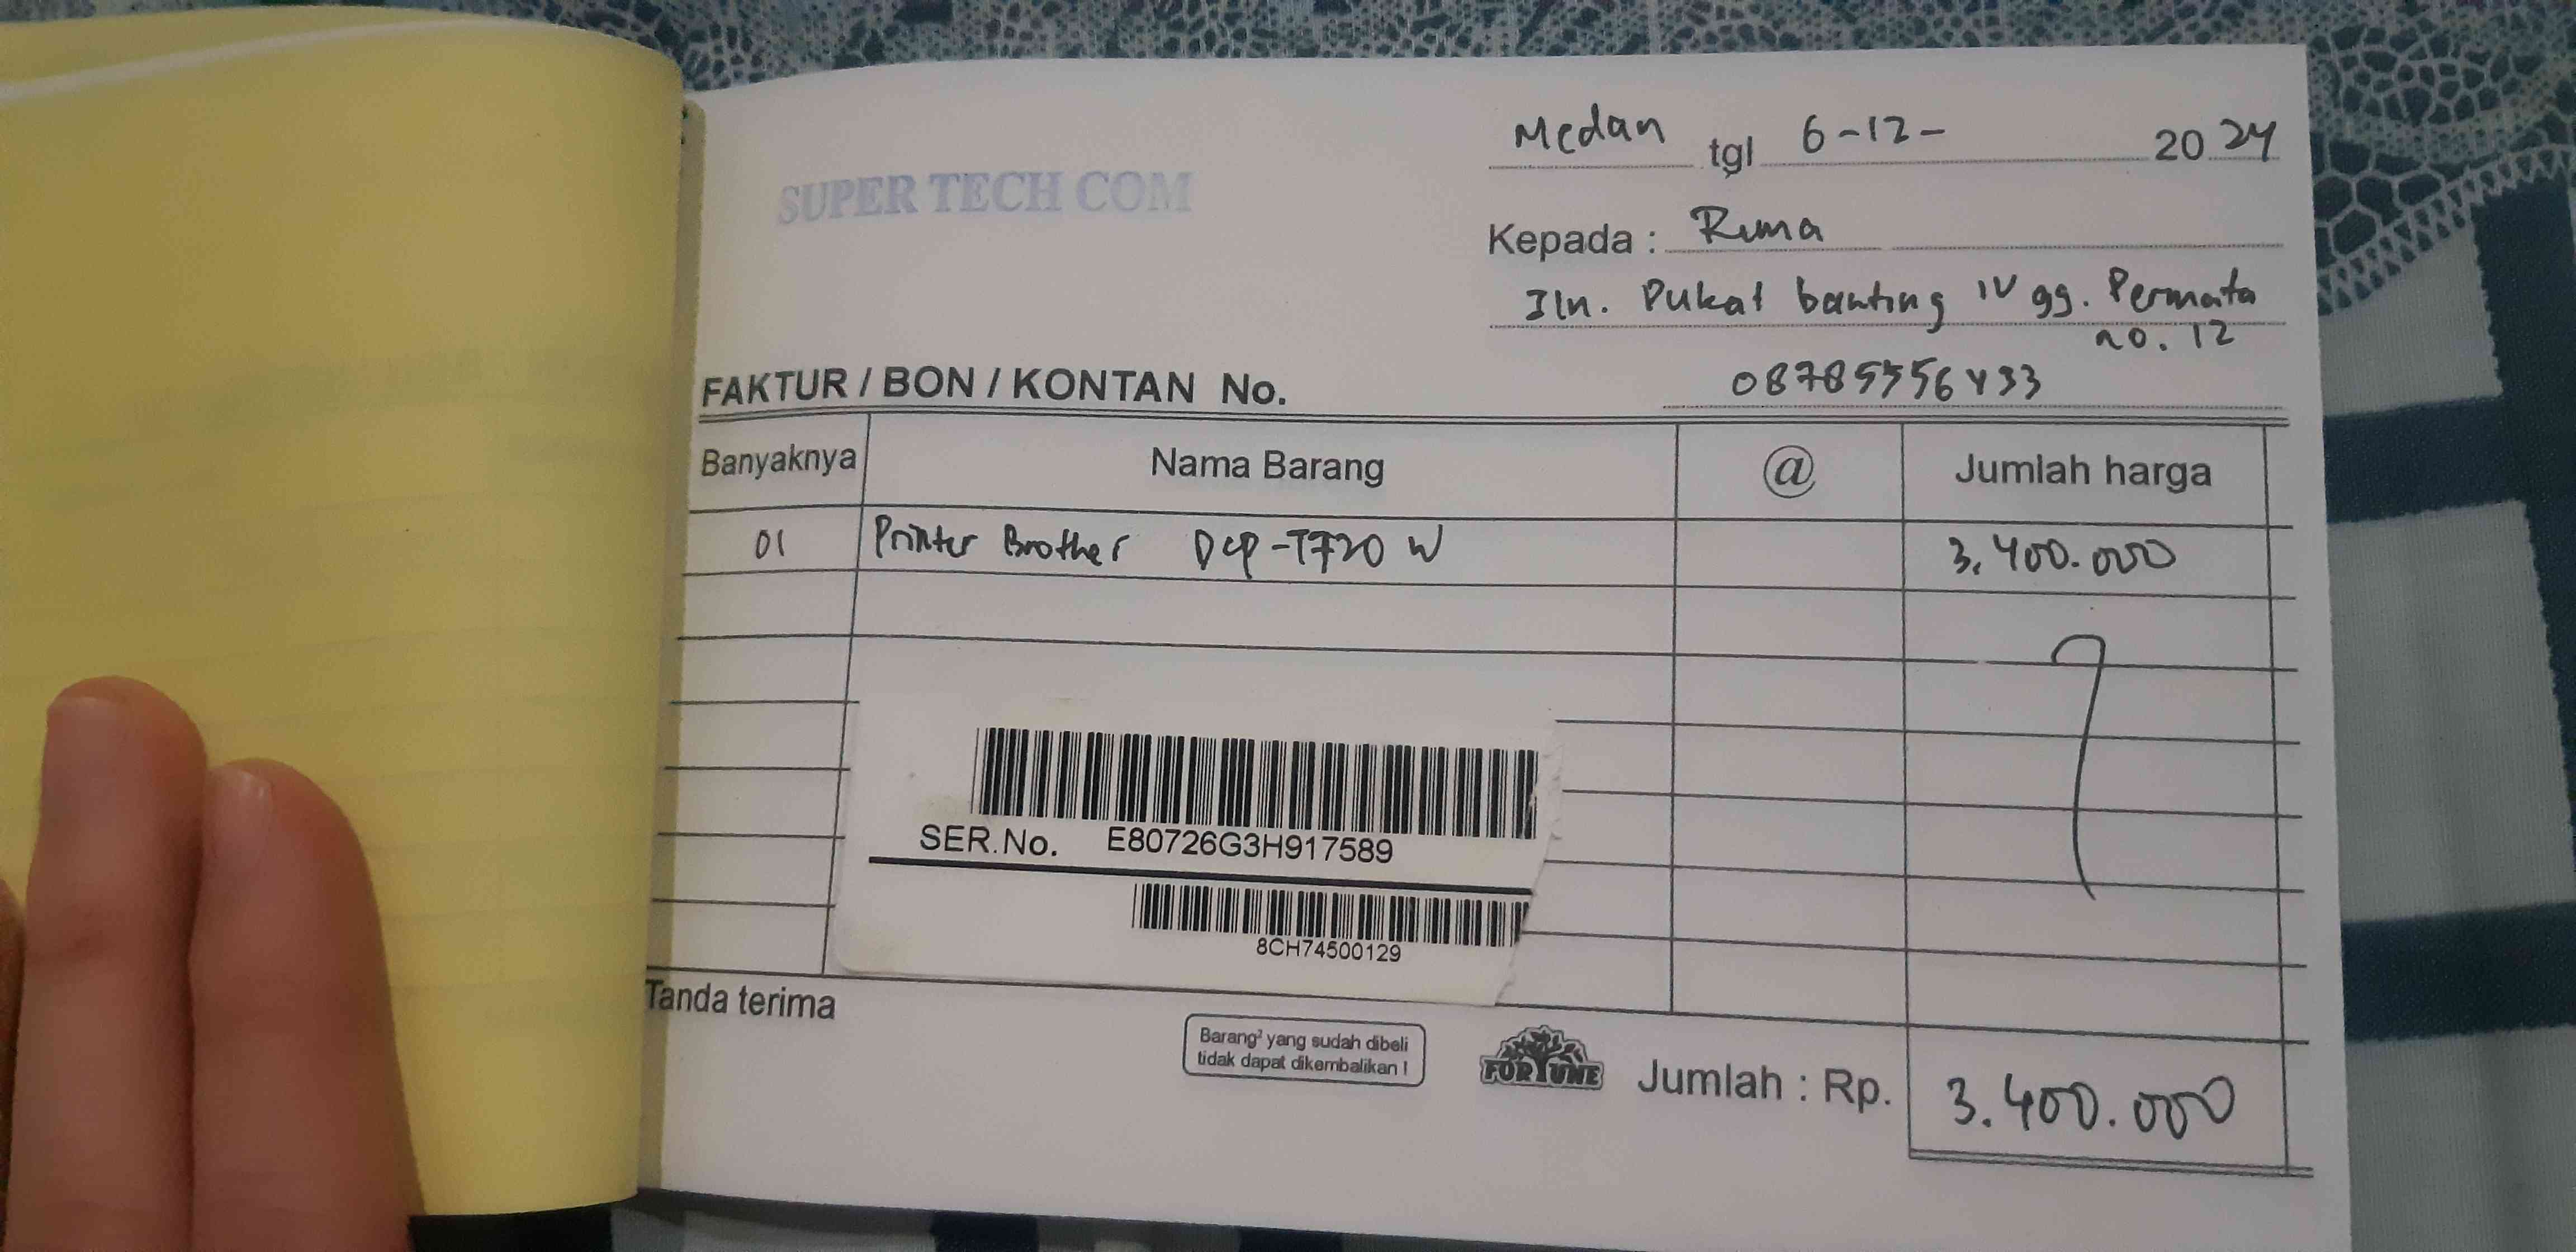 SUPER TECH COM
Medan tgl 6-12- 20 24
Kepada : Rima
Jln. Pukat banting IV gg. Permata
no. 12
FAKTUR / BON / KONTAN No.
Banyaknya Nama Barang @ Jumlah harga
01 Printer Brother DCP-T720 W 3.400.000
SER.No. E80726G3H917589
8CH74500129
Tanda terima
Barang² yang sudah dibeli
tidak dapat dikembalikan !
FORTUNE
Jumlah : Rp. 3.400.000